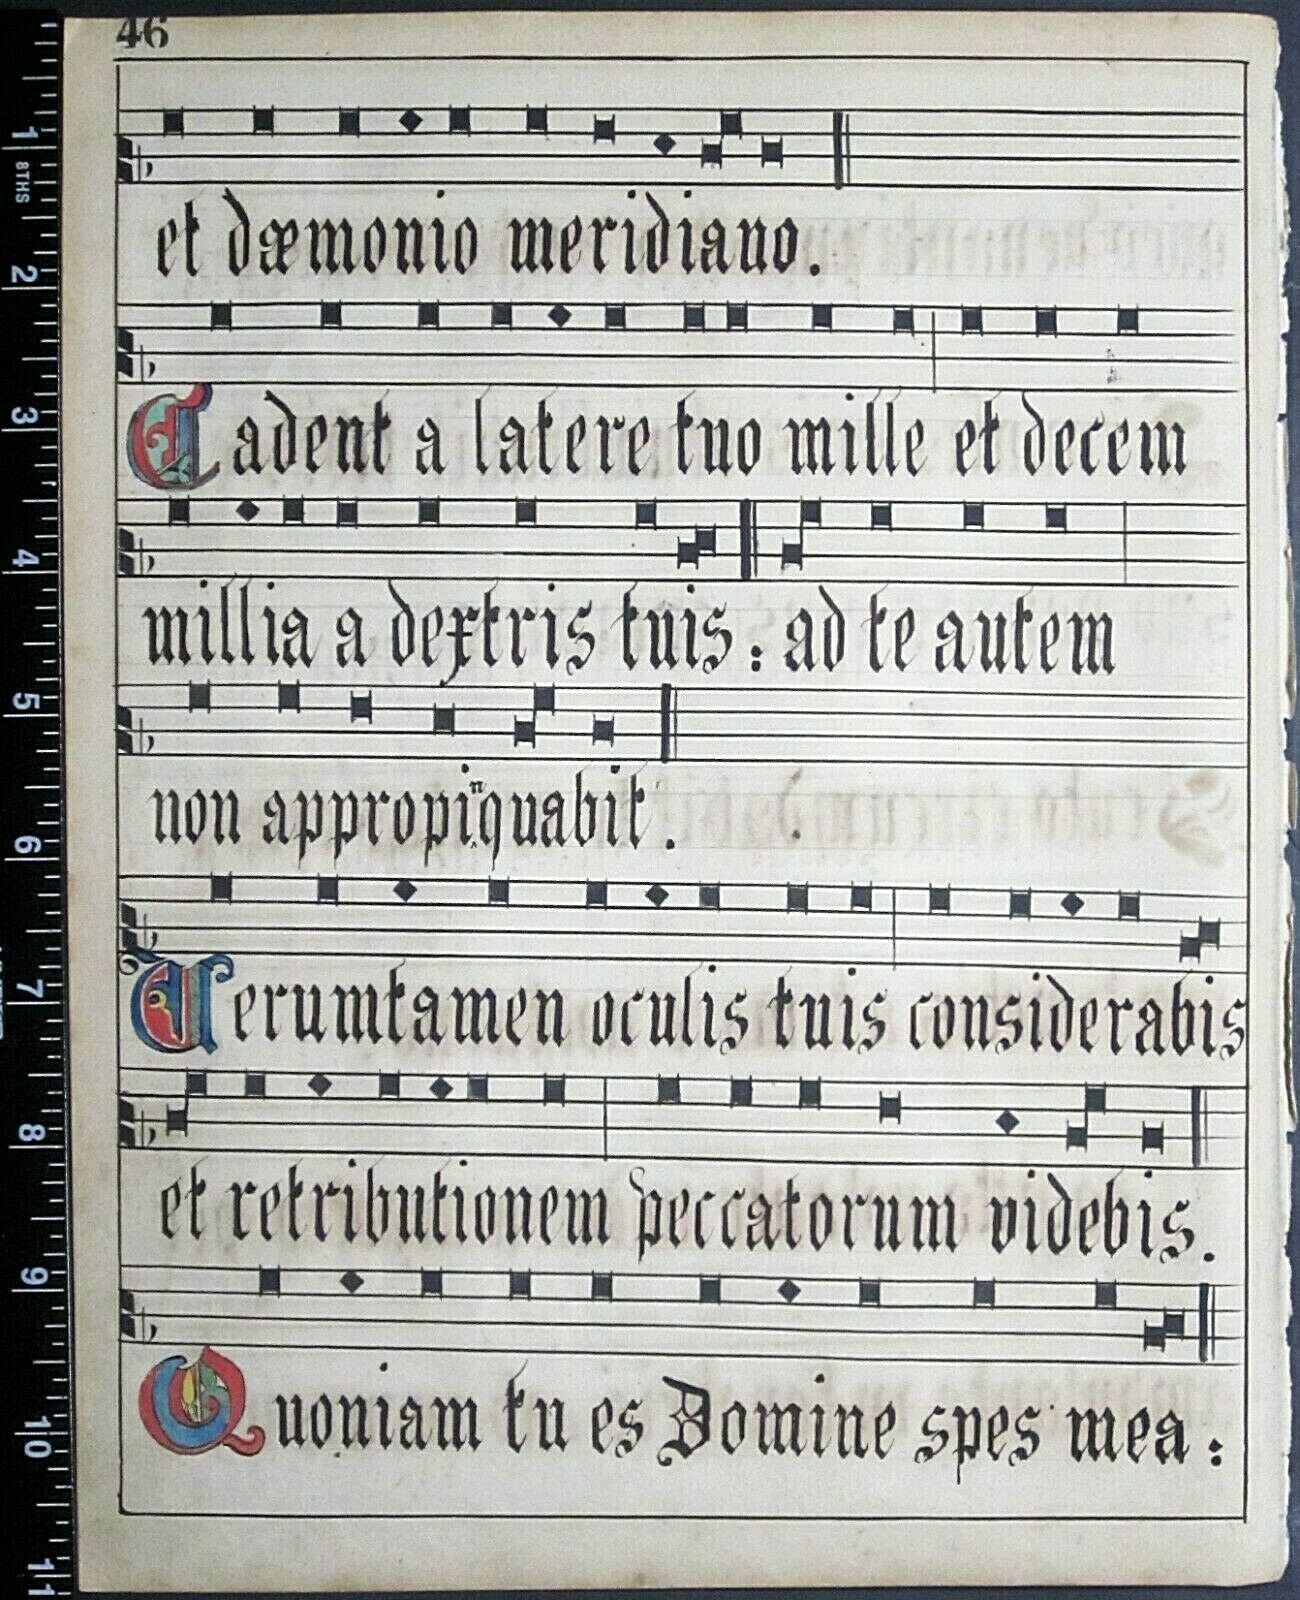 46
et dæmonio meridiano.
Cadent a latere tuo mille et decem
millia a dextris tuis: ad te autem
non appropinquabit.
Verumtamen oculis tuis considerabis
et retributionem peccatorum videbis.
Quoniam tu es Domine spes mea:
1
8THS
2
3
4
5
6
7
8
9
10
11